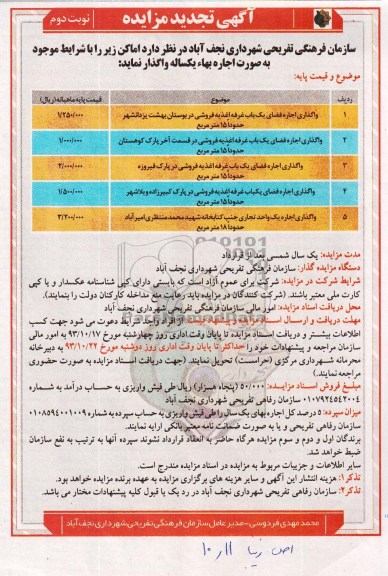 آگهی تجدید مزایده
نوبت دوم
سازمان فرهنگی تفریحی شهرداری نجف آباد در نظر دارد اماکن زیر را با شرایط موجود
به صورت اجاره بهاء یکساله واگذار نماید:
موضوع و قیمت پایه:
ردیف موضوع قیمت پایه ماهیانه (ریال)
۱ واگذاری اجاره فضای یک باب غرفه اغذیه فروشی در بوستان بهشت یزدانشهر حدوداً ۱۵ متر مربع ۱/۲۵۰/۰۰۰
۲ واگذاری اجاره فضای یک باب غرفه اغذیه فروشی در قسمت آخر پارک کوهستان حدوداً ۱۵ متر مربع ۱/۰۰۰/۰۰۰
۳ واگذاری اجاره فضای یک باب غرفه اغذیه فروشی در پارک فیروزه حدوداً ۱۵ متر مربع ۲/۰۰۰/۰۰۰
۴ واگذاری اجاره فضای یکباب غرفه اغذیه فروشی در پارک کبیرزاده ویلاشهر حدوداً ۱۵ متر مربع ۱/۵۰۰/۰۰۰
۵ واگذاری اجاره یک واحد تجاری جنب کتابخانه شهید محمد منتظری امیرآباد حدوداً ۱۸ متر مربع ۳/۲۰۰/۰۰۰
مدت مزایده: یک سال شمسی بعد از قرارداد
دستگاه مزایده گذار: سازمان فرهنگی تفریحی شهرداری نجف آباد
شرایط شرکت در مزایده: شرکت برای عموم آزاد است که بایستی دارای کپی شناسنامه عکسدار و یا کپی
کارت ملی معتبر باشند. (شرکت کنندگان در مزایده باید رعایت منع مداخله کارکنان دولت را بنمایند).
محل دریافت اسناد مزایده: امور مالی سازمان فرهنگی تفریحی شهرداری نجف آباد
مهلت دریافت و ارسال اسناد مزایده و پیشنهاد قیمت: از افراد واجد شرایط دعوت می شود جهت کسب
اطلاعات بیشتر و دریافت اسناد مزایده تا پایان وقت اداری روز چهارشنبه مورخ ۹۳/۱۰/۱۷ به امور مالی
سازمان مراجعه و پیشنهادات خود را حداکثر تا پایان وقت اداری روز دوشنبه مورخ ۹۳/۱۰/۲۲ به دبیرخانه
محرمانه شهرداری مرکزی (حراست) تحویل نمایند. (جهت دریافت اسناد مزایده به صورت حضوری
مراجعه نمایند.)
مبلغ فروش اسناد مزایده: ۵۰/۰۰۰ (پنجاه هزار) ریال طی فیش واریزی به حساب درآمد به شماره
۰۱۰۷۹۲۴۵۴۲۰۰۴ سازمان رفاهی تفریحی شهرداری نجف آباد
میزان سپرده: ۵ درصد کل اجاره بهای یک سال را طی فیش واریزی به حساب سپرده به شماره ۰۱۰۸۵۹۴۰۰۱۰۰۹
سازمان رفاهی تفریحی و یا به صورت ضمانت نامه معتبر بانکی ارایه نمایند.
برندگان اول و دوم و سوم مزایده هرگاه حاضر به انعقاد قرارداد نشوند سپرده آنها به ترتیب به نفع سازمان
ضبط خواهد شد.
سایر اطلاعات و جزییات مربوط به مزایده در اسناد مزایده مندرج است.
تذکر۱: هزینه انتشار این آگهی و سایر هزینه های برگزاری مزایده به عهده برنده مزایده خواهد بود.
تذکر۲: سازمان رفاهی تفریحی شهرداری نجف آباد در رد یک یا قبول کلیه پیشنهادات مختار می باشد.
محمد مهدی فردوسی - مدیر عامل سازمان فرهنگی تفریحی شهرداری نجف آباد